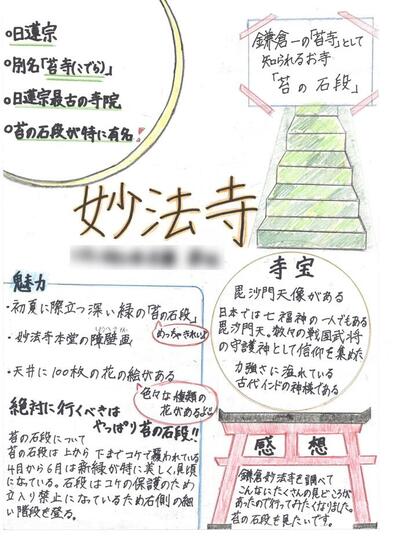 日蓮宗
別名「苔寺(こけでら)」
日蓮宗最古の寺院
苔の石段が特に有名!
鎌倉一の「苔寺」として
知られるお寺
「苔の石段」
妙法寺
魅力
・初夏に際立つ深い緑の「苔の石段」
めっちゃきれいよ
・妙法寺本堂の障壁画
・天井に100枚の花の絵がある
色々な種類の
花があるよ
絶対に行くべきは
やっぱり苔の石段!!
苔の石段について
苔の石段は上から下までコケで覆われている
4月から6月は新緑が特に美しく、見頃
になっている。石段はコケの保護のため
立入り禁止になっているため右側の細
い階段を登る。
寺宝
毘沙門天像がある
日本では七福神の一人でもある
毘沙門天。数々の戦国武将
の守護神として信仰を集めた
力強さに溢れている
古代インドの神様である
感想
鎌倉妙法寺を調べて
こんなにたくさんの見どころが
あったので行ってみたくなりました。
苔の石段を見たいです。